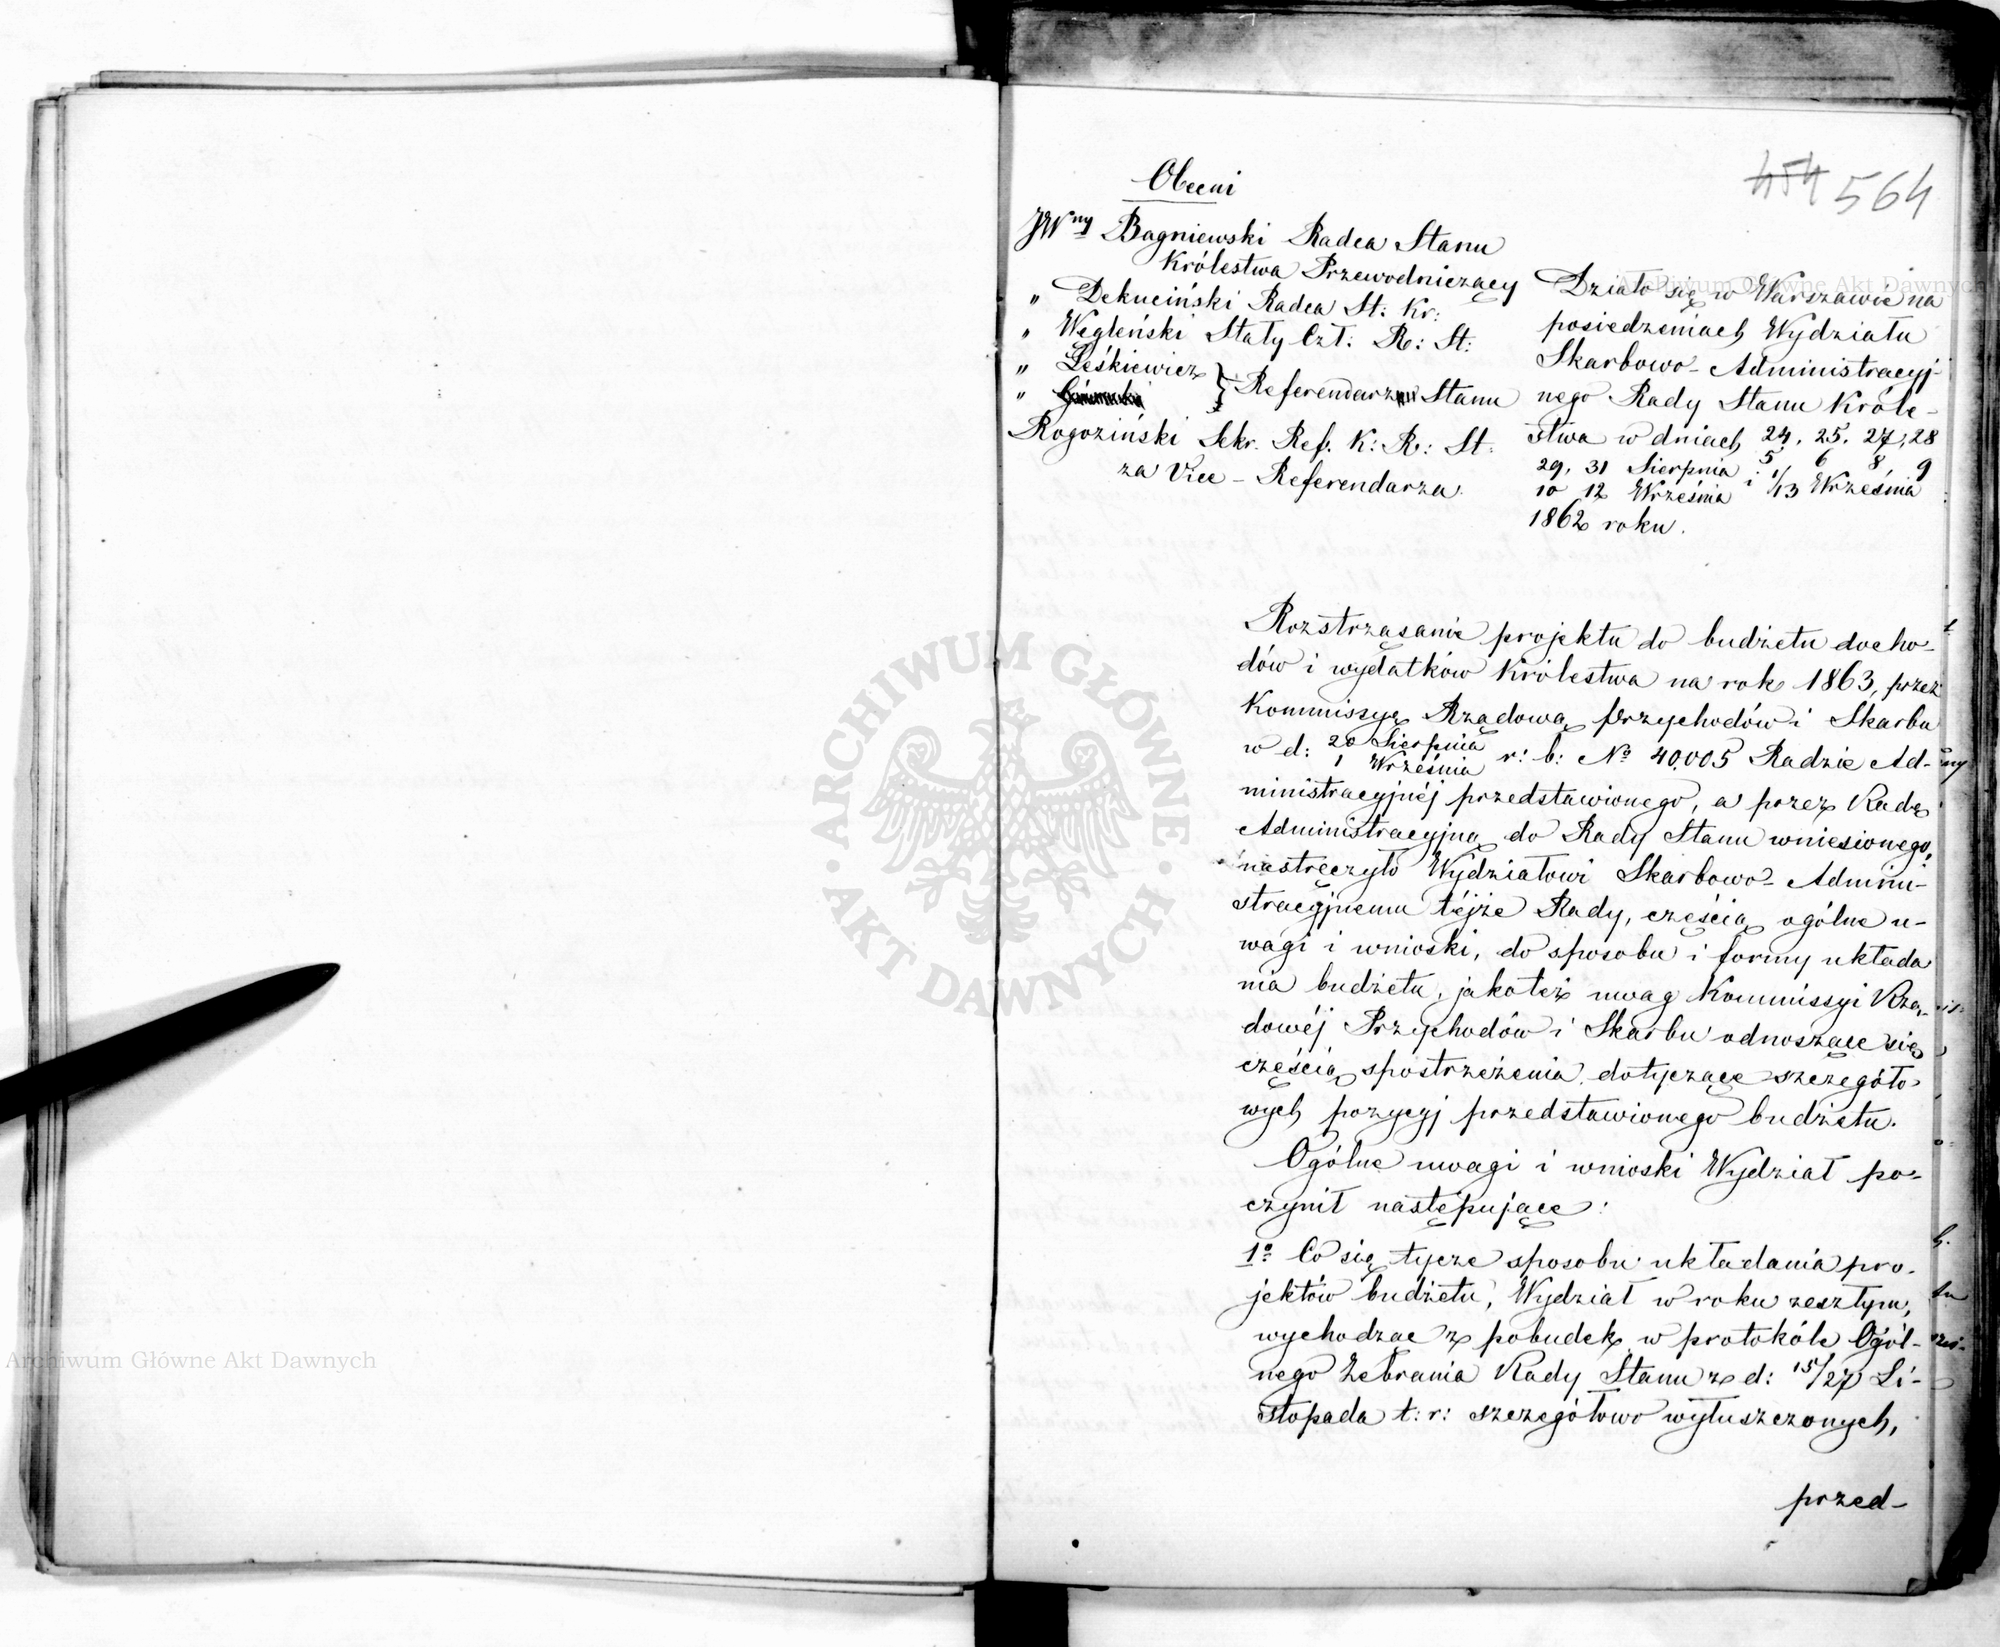 454 564
Obecni
JWny Bagniewski Radca Stanu
Królestwa Przewodniczący
" Dekuciński Radca St: Kr:
" Węgleński Stały Czł: R: St:
" Leśkiewicz } Referendarz Stanu
"
Rogoziński Sekr. Ref. K: R: St.
za Vice - Referendarza.
Działo się w Warszawie na
posiedzeniach Wydziału
Skarbowo - Administracyj-
nego Rady Stanu Króle-
stwa w dniach 24. 25. 27, 28
5 6 8 9
29, 31 Sierpnia i 1/13 Września
10 12 Września
1862 roku.
Rozstrząsanie projektu do budżetu docho-
dów i wydatków Królestwa na rok 1863, przez
Kommissyę Rządową Przychodów i Skarbu
w d: 20 Sierpnia r: b: No 40,005 Radzie Ad-
1 Września
ministracyjnéj przedstawionego, a przez Radę
Administracyjną do Rady Stanu wniesionego,
nastręczyło Wydziałowi Skarbowo - Admini-
stracyjnemu téjże Rady, częścią ogólne u-
wagi i wnioski, do sposobu i formy układa
nia budżetu, jakoteż uwag Kommissyi Rzą-
dowéj Przychodów i Skarbu odnoszące się
częścią spostrzeżenia dotyczące szczegóło-
wych pozycyj przedstawionego budżetu.
Ogólne uwagi i wnioski Wydział po-
czynił następujące:
1o Co się tycze sposobu układania pro-
jektów budżetu, Wydział w roku zeszłym,
wychodząc z pobudek w protokóle Ogól-
nego Zebrania Rady Stanu z d: 15/27 Li-
stopada t: r: szczegółowo wyłuszczonych,
przed-
Archiwum Główne Akt Dawnych
Archiwum Główne Akt Dawnych
ARCHIWUM GŁÓWNE · AKT DAWNYCH ·